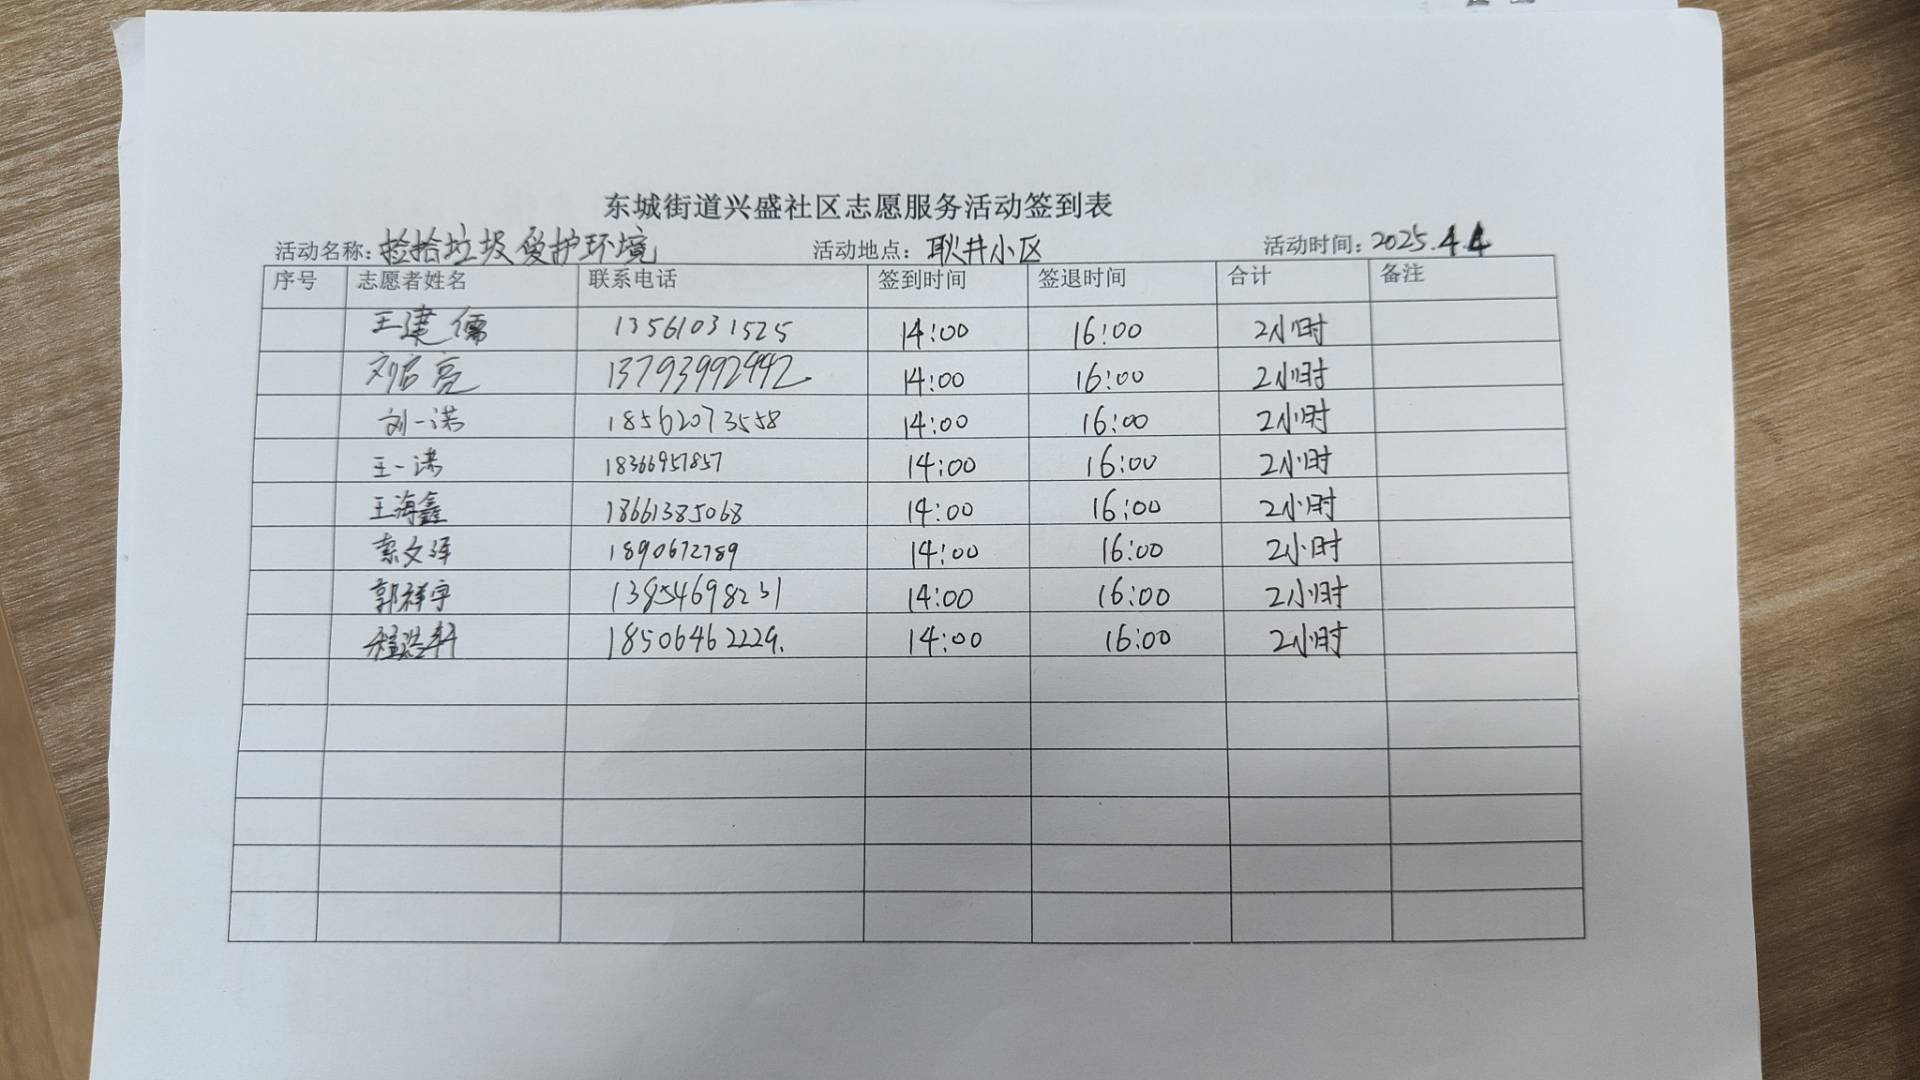 东城街道兴盛社区志愿服务活动签到表
活动名称：捡拾垃圾 爱护环境 活动地点：耿井小区 活动时间：2025.4.4
序号 志愿者姓名 联系电话 签到时间 签退时间 合计 备注
王建儒 13561031525 14:00 16:00 2小时
刘启亮 13793992442 14:00 16:00 2小时
刘一诺 18562073558 14:00 16:00 2小时
王一诺 18366957857 14:00 16:00 2小时
王海鑫 18661385068 14:00 16:00 2小时
索文泽 1890672789 14:00 16:00 2小时
郭祥宇 13854698231 14:00 16:00 2小时
程浩轩 18506462229. 14:00 16:00 2小时